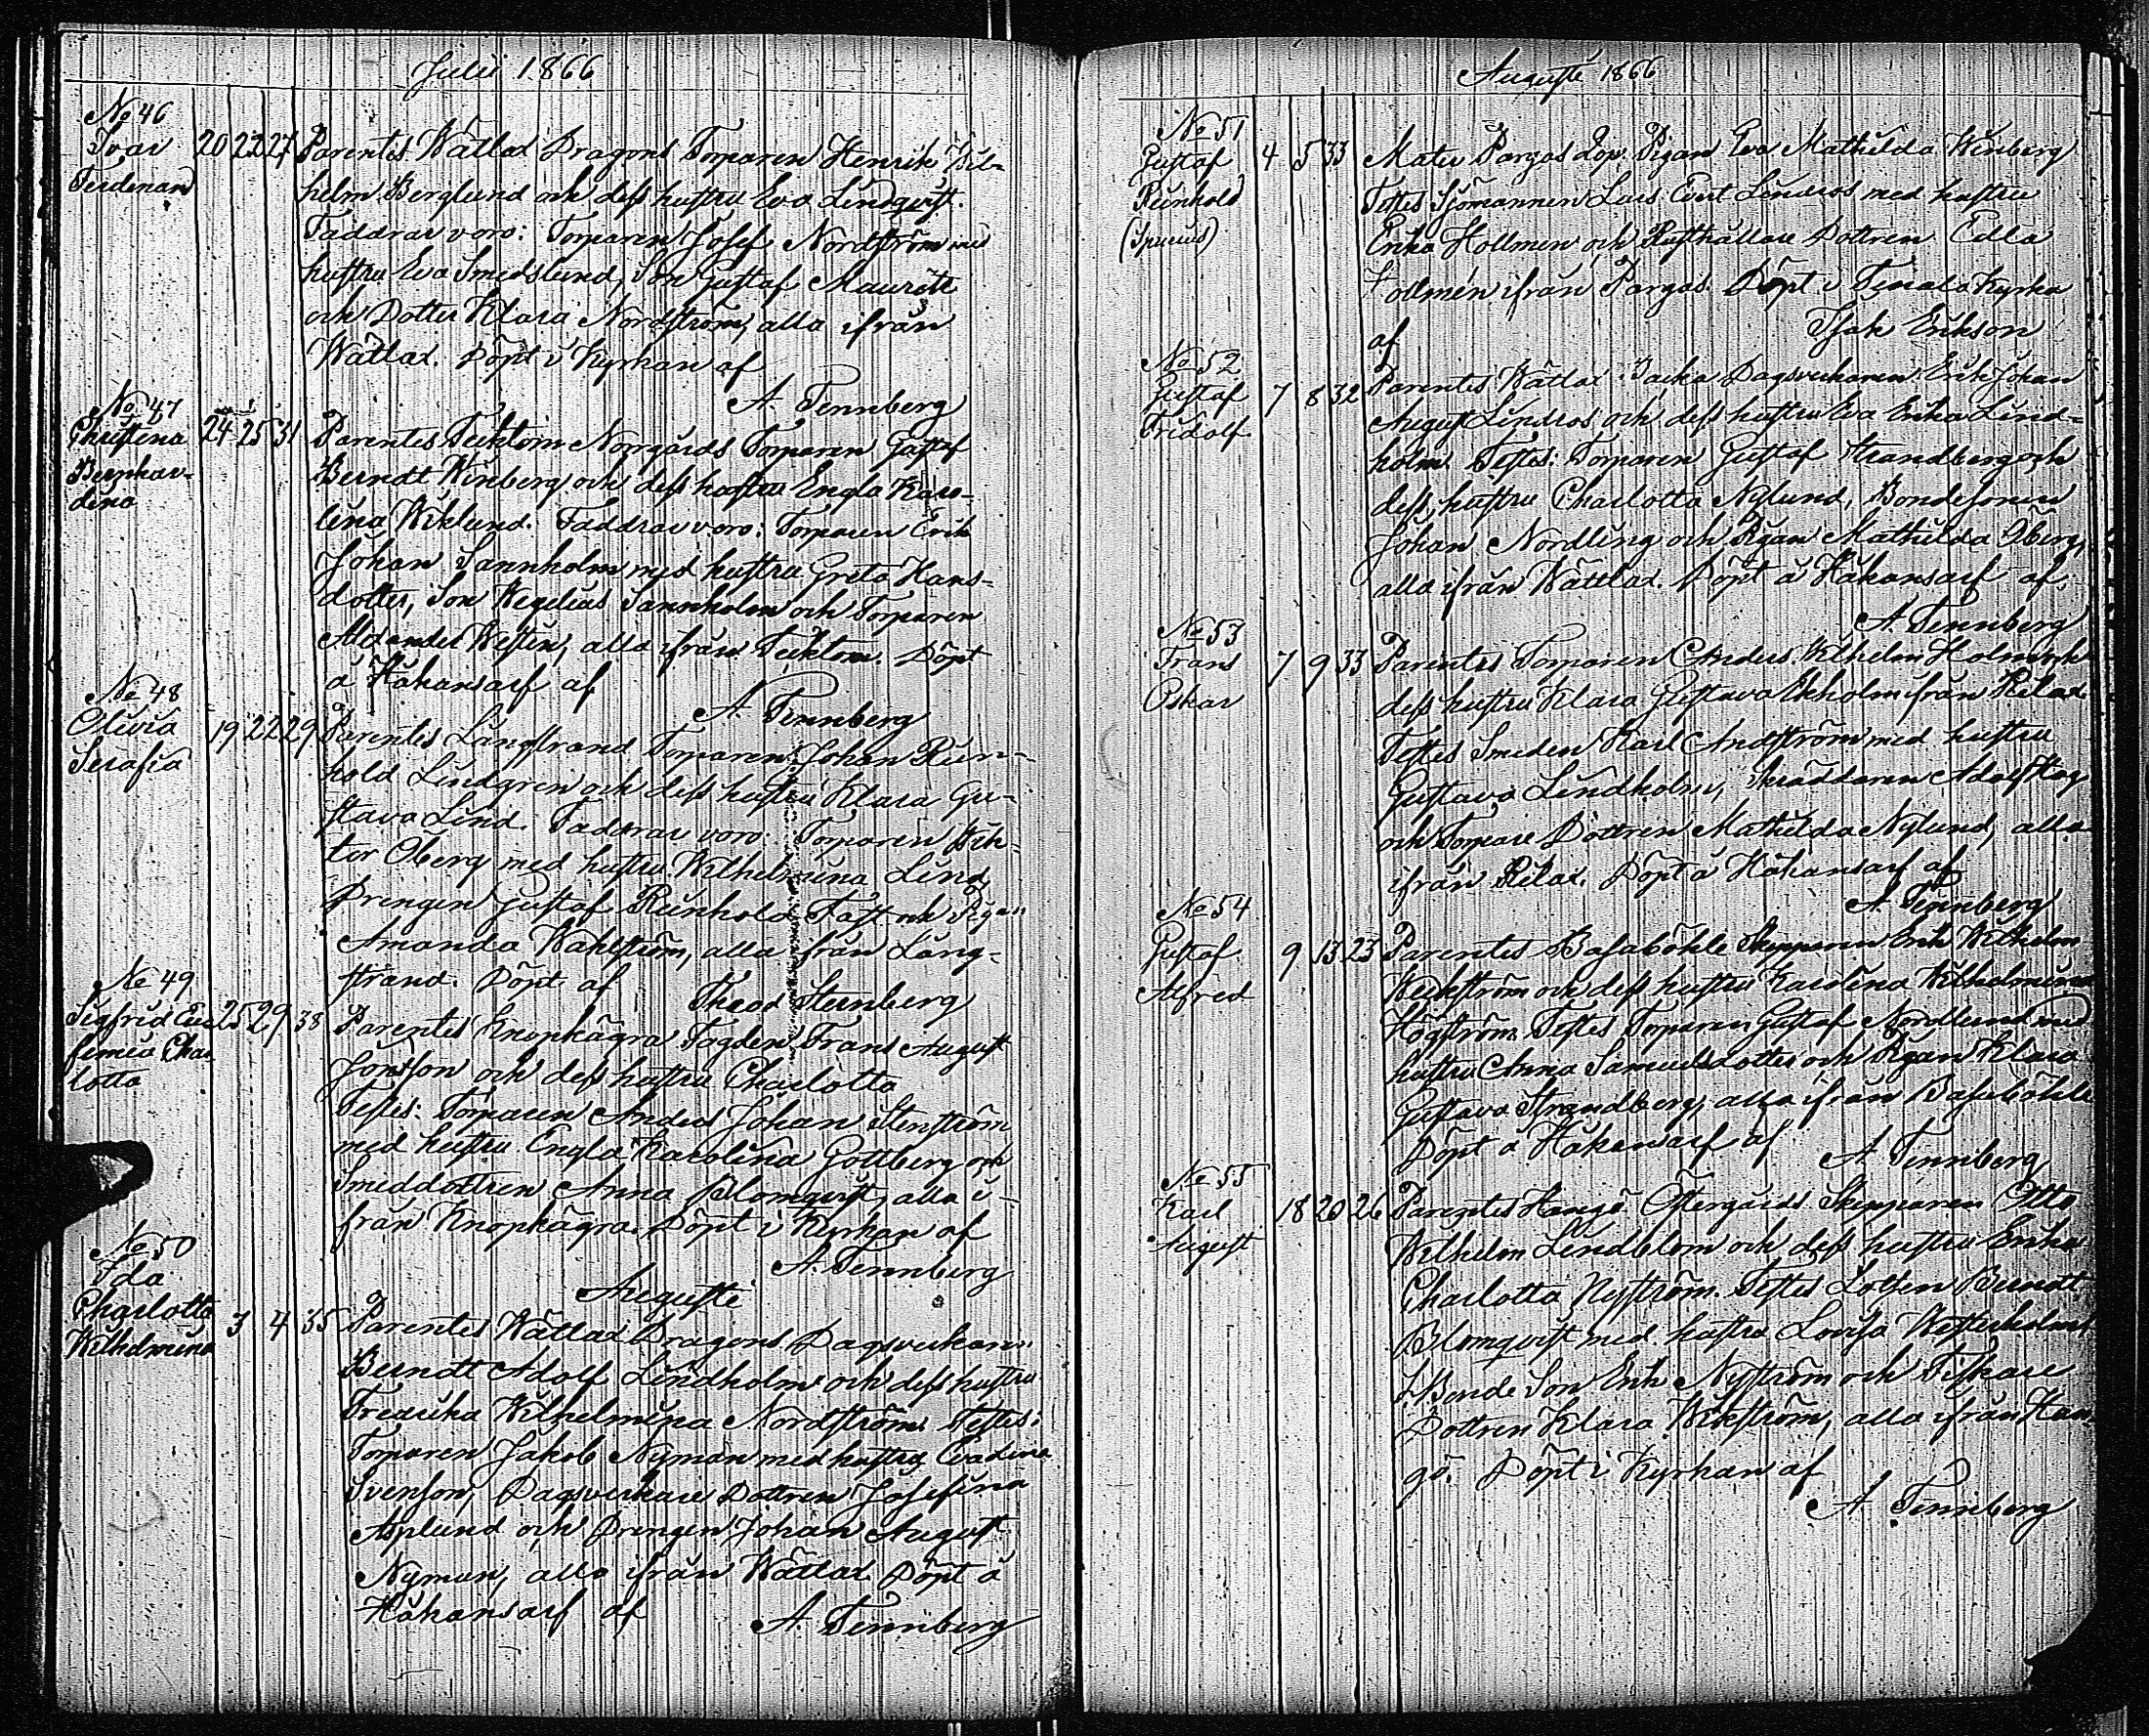 Julii 1866
No 46
Ivar
Ferdinand
20 22 27 Parentes Wättlax Dragons Torparen Henrik Wil-
helm Berglund och dess hustru Eva Lindqvist.
Faddrar voro: Torparen Josef Nordström med
hustru Eva Smedslund, Son Gustaf Mauritz
och Dotter Klara Nordström, alla ifrån
Wättlax. Döpt i Kyrkan af
A. Tennberg
No 47
Christina
Bernhar-
dina
24 25 31 Parentes Tecktom Norrgårds Torparen Gustaf
Berndt Winberg och dess hustru Engla Karo-
lina Wiklund. Faddrar voro: Torparen Erik
Johan Sannholm med hustru Greta Hans-
dotter, Son Wegelius Sannholm och Torparen
Alexander Westin, alla ifrån Tecktom. Döpt
å Håkansarf af
A. Tennberg
No 48
Olivia
Serafia
19 22 29 Parentes Långstrand Torparen Johan Rein-
hold Lindgren och dess hustru Klara Gu-
stava Lind. Faddrar voro: Torparen Wik-
tor Öberg med hustru Wilhelmina Lind
Drengen Gustaf Reinhold Fast och Pigan
Amanda Wahlström, alla från Lång-
strand. Döpt af Theod Stenberg
No 49
Sigfrid Eu-
femia Char
lotta
25 29 38 Parentes Knopkägra Fogden Frans August
Jonsson och dess hustru Charlotta
Testes: Torparen Anders Johan Stenström
med hustru Engla Karolina Gottberg och
Smeddottren Anna Blomqvist, alla i-
från Knopkägra. Döpt i Kyrkan af
A. Tennberg
Augusti
No 50
Ida
Charlotta
Wilhelmina
3 4 35 Parentes Wättlax Dragons Dagsverkaren
Berndt Adolf Lindholm och dess hustru
Fredrika Wilhelmina Nordström. Testes:
Torparen Jakob Nyman med hustru Evadina
Svenson, Dagsverkare Dottren Josefina
Asplund och Drengen Johan August
Nyman, alla ifrån Wättlax. Döpt å
Håkansarf af A. Tennberg
Augusti 1866
No 51
Gustaf
Reinhold
(Spurius)
4 5 33 Mater Pargas Pigan Eva Mathilda Winberg
Testes Sjömannen Lars Evert Lindros med hustru
Erika Hollmen och Rusthållare Dottren Edla
Hollmén ifrån Pargas. Döpt i Tenala Kyrka
af Isak Erikson
No 52
Gustaf
Fridolf
7 8 32 Parentes Wättlax Dagsverkaren Erik Johan
August Lindros och dess hustru Eva Erika Lind-
holm. Testes: Torparen Gustaf Strandberg och
dess hustru Charlotta Nylund, Bondesonen
Johan Nordling och Pigan Mathilda Öberg,
alla ifrån Wättlax. Döpt å Håkansarf af
A. Tennberg
No 53
Frans
Oskar
7 9 33 Parentes Torparen Anders Wilhelm Holm och
dess hustru Klara Gustava Ekholm ifrån Rilax
Testes Smeden Karl Andström med hustru
Gustava Lindholm, Skräddaren Adolf Hög
och Torpare Dottren Mathilda Nylund, alla
ifrån Rilax. Döpt å Håkansarf af
A. Tennberg
No 54
Gustaf
Alfred
9 13 23 Parentes Basaböhle Skepparen Erik Wilhelm
Weckström och dess hustru Karolina Wilhelmina
Högström. Testes Torparen Gustaf Nordlund med
hustru Anna Samuelsdotter och Pigan Klara
Gustava Strandberg, alla ifrån Basaböhle
Döpt å Håkansarf af A. Tennberg
No 55
Karl
August
18 20 26 Parentes Hangö Östergårds Skepparen Otto
Wilhelm Lindblom och dess hustru Erika
Charlotta Nyström. Testes Lotsen Berndt
Blomqvist med hustru Lovisa Westerholm
Bonde Son Erik Nyström och Fiskare
Dottren Klara Wikström, alla ifrån Han
gö. Döpt i Kyrkan af
A. Tennberg